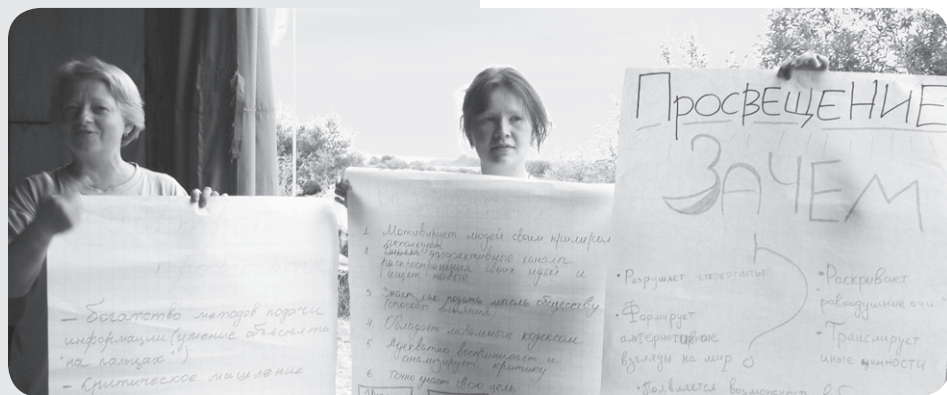 – богатство методов подачи
информации (умение объяснять
"на пальцах")
– критическое мышление
1. Мотивирует людей своим примером
2. использует эффективные каналы
распространения своих идей и
ищет новые
3. Знает как подать мысль обществу
(способы влияния)
4. Обладает моральным кодексом
5. Адекватно воспринимает и
анализирует критику
6. Точно знает свою цель
ПРОСВЕЩЕНИЕ
ЗАЧЕМ
• Разрушает стереотипы
• Формирует
альтернативные
взгляды на мир
• Появляется возможность
• Раскрывает
равнодушные очи
• Транслирует
иные ценности